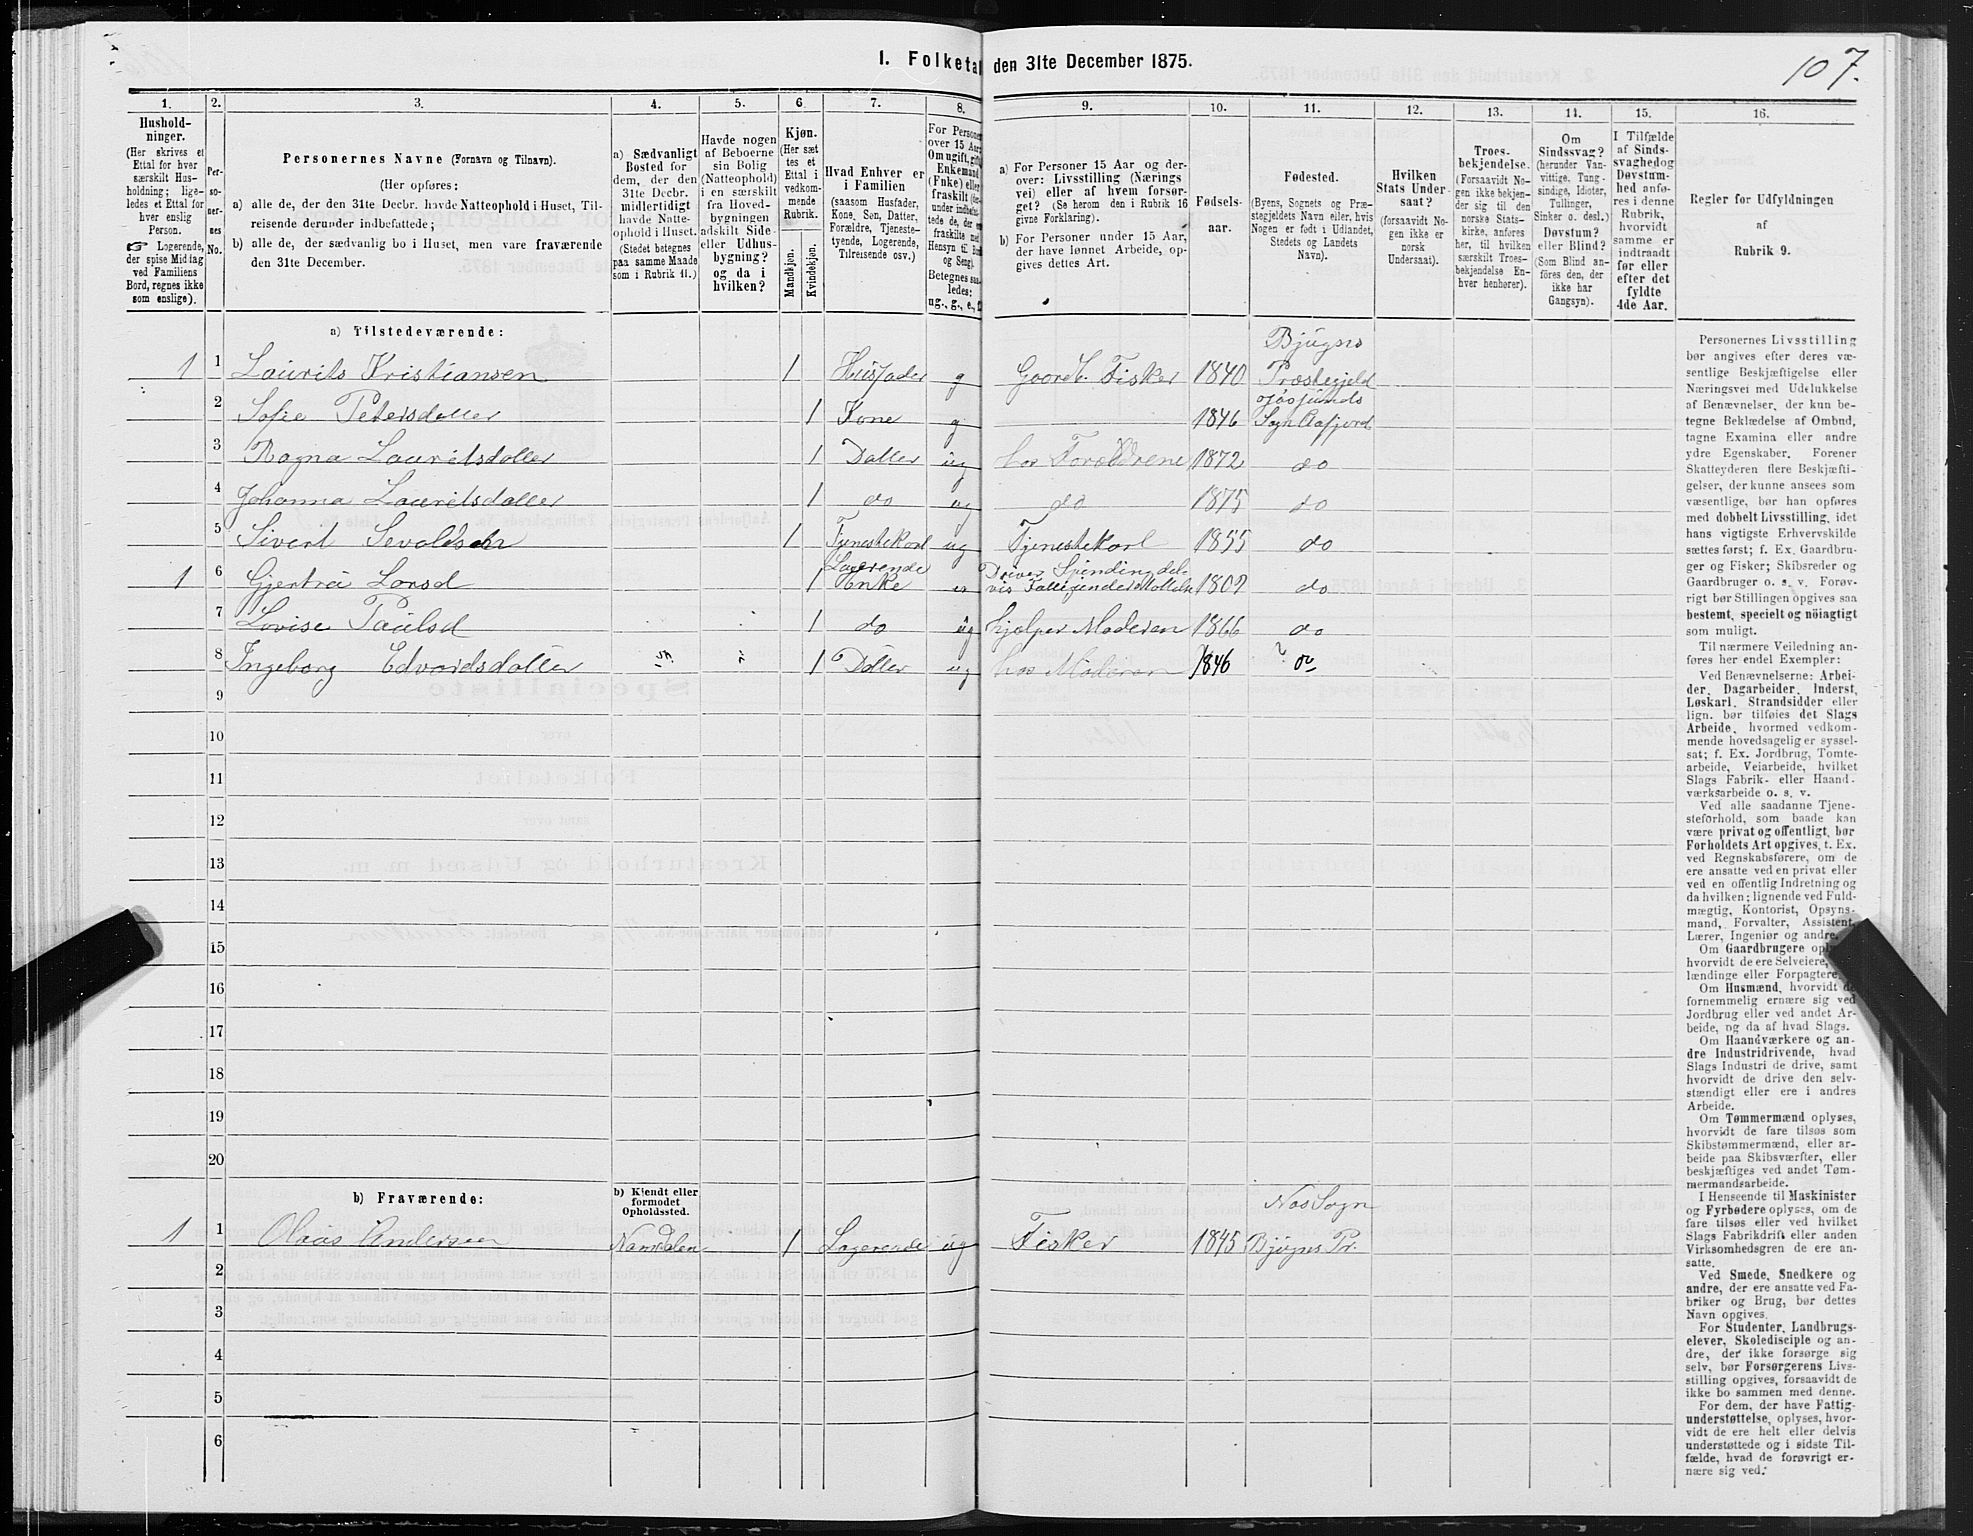 1. Folketal den 31te December 1875.
107.
1.
2.
3.
4.
5.
6.
7.
8.
9.
10.
11.
12.
13.
14.
15.
16.
Hushold-
ninger.
(Her skrives et
Ettal for hver
særskilt Hus-
holdning; lige-
ledes et Ettal for
hver enslig
Person.
☞ Logerende,
der spise Middag
ved Familiens
Bord, regnes ikke
som enslige).
Per-
so-
ner-
nes
No.
Personernes Navne (Fornavn og Tilnavn).
(Her opføres:
a) alle de, der den 31te Decbr. havde Natteophold i Huset, Til-
reisende derunder indbefattede;
b) alle de, der sædvanlig bo i Huset, men vare fraværende
den 31te December.
a) Sædvanligt
Bosted for
dem, der den
31te Decbr.
midlertidigt
havde Natte-
ophold i Huset.
(Stedet betegnes
paa samme Maade
som i Rubrik 11.)
Havde nogen
af Beboerne
sin Bolig
(Natteophold)
i en særskilt
fra Hoved-
bygningen
adskilt Side-
eller Udhus-
bygning?
og da i
hvilken?
Kjøn.
(Her sæt-
tes et
Ettal i
vedkom-
mende
Rubrik.
Mandkjøn.
Kvindekjøn.
Hvad Enhver er
i Familien
(saasom Husfader,
Kone, Søn, Datter,
Forældre, Tjeneste-
tyende, Logerende,
Tilreisende osv.)
For Personer
over 15 Aar:
Om ugift, gift,
Enkemand
(Enke) eller
fraskilt
Betegnes saa-
ledes:
ug., g., e., f.
a) For Personer 15 Aar og der-
over: Livsstilling (Nærings-
vei) eller af hvem forsør-
get? (Se herom den i Rubrik 16
givne Forklaring).
b) For Personer under 15 Aar,
der have lønnet Arbeide, op-
gives dettes Art.
Fødsels-
aar.
Fødested.
(Byens, Sognets og Præ-
stegjeldets Navn eller, hvis
Nogen er født i Udlandet,
Stedets og Landets
Navn).
Hvilken
Stats Under-
saat?
(forsaavidt No-
gen ikke er
norsk
Undersaat).
Troes-
bekjendelse.
(Forsaavidt No-
gen ikke bekjen-
der sig til den
norske Stats-
kirke, anføres
her, til hvilken
særskilt Troes-
bekjendelse En-
hver henhører).
Om
Sindssvag?
(herunder Van-
vittige, Tung-
sindige, Idioter,
Tullinger,
Sinker o. desl.)
Døvstum?
eller Blind?
(Som Blind an-
føres den, der
ikke har
Gangsyn).
I Tilfælde
af Sinds-
svaghed og
Døvstum-
hed anfø-
res i denne
Rubrik,
hvorvidt
samme er
indtraadt
før eller
efter det
fyldte
4de Aar.
Regler for Udfyldningen
af
Rubrik 9.
a) Tilstedeværende:
Bjugns
1 1 Laurits Kristiansen 1 Husfader g Gaardb. Fisker 1840 Præstegjeld
Jøssunds
2 Sofie Petersdatter 1 Kone g 1846 Sogn Aafjord
3 Ragna Lauritsdatter 1 Datter ug hos Forældrene 1872 do
4 Johanna Lauritsdatter 1 do ug do 1875 do
5 Sivert Sevaldsen 1 Tjenestekarl ug Tjenestekarl 1855 do
Logerende Driver Spinding del-
1 6 Gjertrå Larsd 1 Enke e vis 1809 do
7 Lovise Paulsd 1 do ug hjælper Moderen 1866 do
8 Ingeborg Edvardsdatter 1 Datter ug hos Moderen 1846 ? do
9
10
11
12
13
14
15
16
17
18
19
20
b) Fraværende:
b) Kjendt eller
formodet
Opholdssted.
Nes Sogn
1 1 Olaus Andersen Namdalen 1 Logerende ug Fisker 1845 Bjugns Pr.
2
3
4
5
6
Personernes Livsstilling
bør angives efter deres væ-
sentlige Beskjæftigelse eller
Næringsvei med Udelukkelse
af Benævnelser, der kun be-
tegne Beklædelse af Ombud,
tagne Examina eller andre
ydre Egenskaber. Forener
Skatteyderen flere Beskjæfti-
gelser, der kunne ansees som
væsentlige, bør han opføres
med dobbelt Livsstilling, idet
hans vigtigste Erhvervskilde
sættes først; f. Ex. Gaardbru-
ger og Fisker; Skibsreder og
Gaardbruger o. s. v. Forøv-
rigt bør Stillingen opgives saa
bestemt, specielt og nöiagtigt
som muligt.
Til nærmere Veiledning an-
føres her endel Exempler:
Ved Benævnelserne: Arbei-
der, Dagarbeider, Inderst,
Løskarl, Strandsidder eller
lign. bør tilføies det Slags
Arbeide, hvormed vedkom-
mende hovedsagelig er syssel-
sat; f. Ex. Jordbrug, Tomte-
arbeide, Veiarbeide, hvilket
Slags Fabrik- eller Haand-
værksarbeide o. s. v.
Ved alle saadanne Tjene-
steforhold, som baade kan
være privat og offentligt, bør
Forholdets Art opgives, t. Ex.
ved Regnskabsførere, om de
ere ansatte ved en privat eller
ved en offentlig Indretning og
da hvilken; lignende ved Fuld-
mægtig, Kontorist, Opsyns-
mand, Forvalter, Assistent,
Lærer, Ingeniør og andre.
Om Gaardbrugere oplyses,
hvorvidt de ere Selveiere, Lei-
lændinge eller Forpagtere.
Om Husmænd, hvorvidt de
fornemmelig ernære sig ved
Jordbrug eller ved andet Ar-
beide, og da af hvad Slags.
Om Haandværkere og an-
dre Industridrivende, hvad
Slags Industri de drive, samt
hvorvidt de drive den selv-
stændigt eller ere i andres
Arbeide.
Om Tømmermænd oplyses,
hvorvidt de fare tilsøs som
Skibstømmermænd, eller ar-
beide paa Skibsværfter, eller
beskjæftiges ved andet Tøm-
mermandsarbeide.
I Henseende til Maskinister
og Fyrbødere oplyses, om de
fare tilsøs eller ved hvilket
Slags Fabrikdrift eller anden
Virksomhedsgren de ere an-
satte.
Ved Smede, Snedkere og
andre, der ere ansatte ved Fa-
briker og Brug, bør dettes
Navn opgives.
For Studenter, Landbrugs-
elever, Skoledisciple og an-
dre, der ikke forsørge sig
selv, bør Forsørgerens Livs-
stilling opgives, forsaavidt de
ikke bo sammen med denne.
For dem, der have Fattig-
understøttelse, oplyses, hvor-
vidt de ere helt eller delvis
understøttede og i sidste Til-
fælde, hvad de forøvrigt er-
nære sig ved.